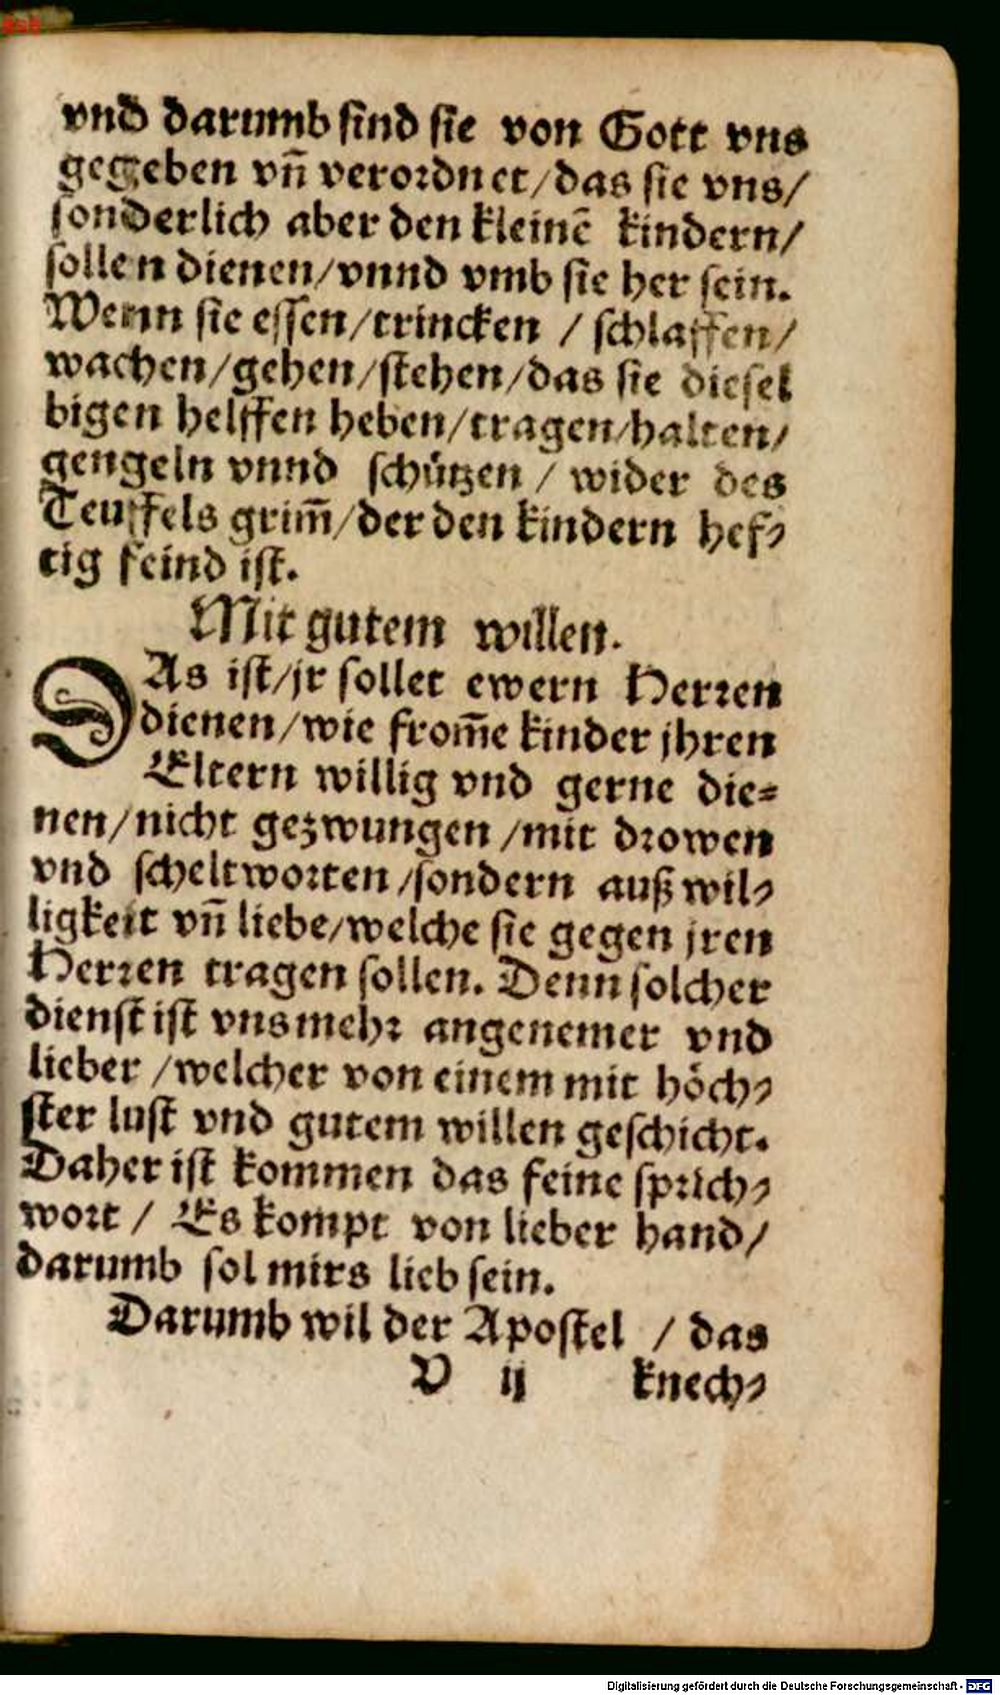 vnd darumb sind sie von Gott vns
gegeben vñ verordnet/das sie vns/
sonderlich aber den kleinē kindern/
sollen dienen/vnnd vmb sie her sein.
Wenn sie essen/trincken / schlaffen/
wachen/gehen/stehen/das sie diesel
bigen helffen heben/tragen/halten/
gengeln vnnd schützen / wider des
Teuffels grim̄/der den kindern hef-
tig feind ist.
Mit gutem willen.
DAs ist/jr sollet ewern Herren
dienen/wie from̄e kinder jhren
Eltern willig vnd gerne die-
nen/nicht gezwungen /mit drowen
vnd scheltworten /sondern auß wil-
ligkeit vñ liebe/welche sie gegen jren
Herren tragen sollen. Denn solcher
dienst ist vns mehr angenemer vnd
lieber /welcher von einem mit höch-
ster lust vnd gutem willen geschicht.
Daher ist kommen das feine sprich-
wort / Es kompt von lieber hand/
darumb sol mirs lieb sein.
Darumb wil der Apostel / das
V ij knech-
Digitalisierung gefördert durch die Deutsche Forschungsgemeinschaft - DFG